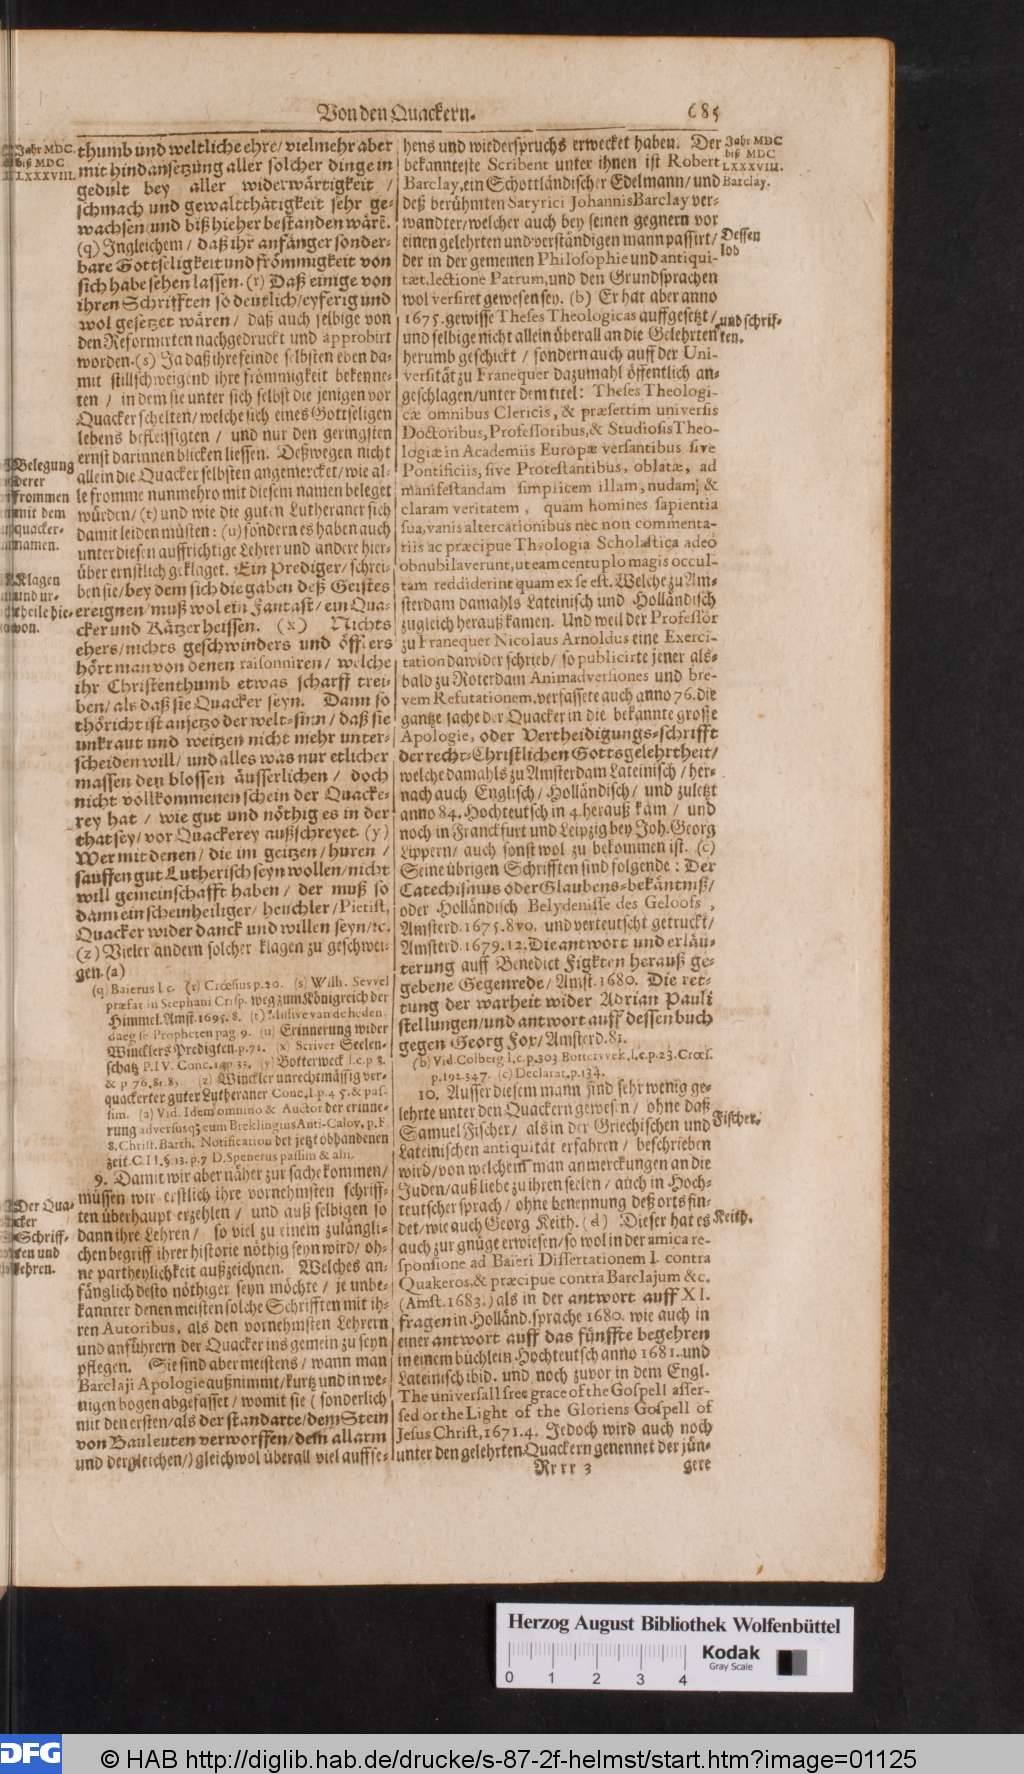 Von den Quackern.
685
Jahr MDC.
biß MDC
LXXXVIII.
thumb und weltliche ehre/ vielmehr aber
mit hindansetzung aller solcher dinge in
gedult bey aller widerwärtigkeit /
schmach und gewaltthätigkeit sehr ge-
wachsen und biß hieher bestanden wärē.
(q) Ingleichem / daß ihr anfänger sonder-
bare Gottseligkeit und frömmigkeit von
sich habe sehen lassen. (r) Daß einige von
ihren Schrifften so deutlich/ eyferig und
wol gesetzet wären / daß auch selbige von
den Reformirten nachgedruckt und approbirt
worden. (s) Ja daß ihre feinde selbsten eben da-
mit stillschweigend ihre frömmigkeit bekenne-
ten / in dem sie unter sich selbst die jenigen vor
Quacker schelten/ welche sich eines Gottseligen
lebens befleissigten / und nur den geringsten
ernst darinnen blicken liessen. Deßwegen nicht
allein die Quacker selbsten angemercket/ wie al-
le fromme nunmehro mit diesem namen beleget
würden/ (t) und wie die guten Lutheraner sich
damit leiden müsten: (u) sondern es haben auch
unter diesen auffrichtige Lehrer und andere hier-
über ernstlich geklaget. Ein Prediger/ schrei-
ben sie/ bey dem sich die gaben deß Geistes
ereignen/ muß wol ein Fantast/ ein Qua-
cker und Kätzer heissen. (x) Nichts
ehers/ nichts geschwinders und öffters
hört man von denen raisonniren/ welche
ihr Christenthumb etwas scharff trei-
ben/ als daß sie Quacker seyn. Dann so
thöricht ist anjetzo der welt-sinn/ daß sie
unkraut und weitzen nicht mehr unter-
scheiden will/ und alles was nur etlicher
massen den blossen äusserlichen / doch
nicht vollkommenen schein der Quacke-
rey hat / wie gut und nöthig es in der
that sey/ vor Quackerey außschreyet. (y)
Wer mit denen/ die im geitzen/ huren /
sauffen gut Lutherisch seyn wollen/ nicht
will gemeinschafft haben / der muß so
dann ein scheinheiliger/ heuchler/ Pietist,
Quacker wider danck und willen seyn/ ꝛc.
(z) Vieler andern solcher klagen zu geschwei-
gen. (a)
Belegung
derer
frommen
mit dem
quacker-
namen.
Klagen
und ur-
theile hie-
von.
(q) Baierus l. c. (r) Crœsius p. 20. (s) Wilh. Sewel
præfat in Stephani Crisp. weg zum Königreich der
Himmel. Amst. 1695. 8. (t) Missive van de heden-
daegse Propheten pag. 9. (u) Erinnerung wider
Wincklers Predigten, p. 71. (x) Scriver Seelen-
schatz P. IV. Conc. 14 p 35. (y) Botterweck l. c. p 3.
& p 76. 81. 83. (z) Winckler unrechtmässig ver-
quackerter guter Lutheraner Conc. I. p. 45. & pas-
sim. (a) Vid. Idem omnino & Auctor der erinne-
rung adversusq; eum Breklingius Anti-Calov. p. F.
8. Christ. Barth. Notification der jetzt obhandenen
zeit. C. II. § 13. p. 7 D. Spenerus passim & alii.
9. Damit wir aber näher zur sache kommen/
müssen wir erstlich ihre vornehmsten schriff-
ten überhaupt erzehlen / und auß selbigen so
dann ihre Lehren / so viel zu einem zulängli-
chen begriff ihrer historie nöthig seyn wird/ oh-
ne partheylichkeit außzeichnen. Welches an-
fänglich desto nöthiger seyn möchte / je unbe-
kannter denen meisten solche Schrifften mit ih-
ren Autoribus, als den vornehmsten Lehrern
und anführern der Quacker ins gemein zu seyn
pflegen. Sie sind aber meistens / wann man
Barclaji Apologie außnimmt/ kurtz und in we-
nigen bogen abgefasset / womit sie ( sonderlich
mit den ersten/ als der standarte/ dem Stein
von Bauleuten verworffen/ dem allarm
und dergleichen/) gleichwol überall viel auffse-
Der Qua-
cker
Schriff-
ten und
lehren.
hens und wiederspruchs erwecket haben. Der
bekannteste Scribent unter ihnen ist Robert
Barclay, ein Schottländischer Edelmann/ und
deß berühmten Satyrici Johannis Barclay ver-
wandter/ welcher auch bey seinen gegnern vor
einen gelehrten und verständigen mann passirt/
der in der gemeinen Philosophie und antiqui-
tæt, lectione Patrum, und den Grundsprachen
wol versiret gewesen sey. (b) Er hat aber anno
1675. gewisse Theses Theologicas auffgesetzt /
und selbige nicht allein überall an die Gelehrten
herumb geschickt / sondern auch auff der Uni-
versität zu Franequer dazumahl öffentlich an-
geschlagen/ unter dem titel: Theses Theologi-
cæ omnibus Clericis, & præsertim universis
Doctoribus, Professoribus, & Studiosis Theo-
logiæ in Academiis Europæ versantibus sive
Pontificiis, sive Protestantibus, oblatæ, ad
manifestandam simplicem illam, nudam & 
claram veritatem, quam homines sapientia
sua, vanis altercationibus nec non commenta-
riis ac præcipue Theologia Scholastica adeò
obnubilaverunt, ut eam centuplo magis occul-
tam reddiderint quam ex se est. Welche zu Am-
sterdam damahls Lateinisch und Holländisch
zugleich herauß kamen. Und weil der Professor
zu Franequer Nicolaus Arnoldus eine Exerci-
tation dawider schrieb/ so publicirte jener als-
bald zu Roterdam Animadversiones und bre-
vem Refutationem, verfassete auch anno 76. die
gantze sache der Quacker in die bekannte grosse
Apologie, oder Vertheidigungs-schrifft
der recht-Christlichen Gottsgelehrtheit/
welche damahls zu Amsterdam Lateinisch / her-
nach auch Englisch/ Holländisch/ und zuletzt
anno 84. Hochteutsch in 4. herauß kam / und
noch in Franckfurt und Leipzig bey Joh. Georg
Lippern/ auch sonst wol zu bekommen ist. (c)
Seine übrigen Schrifften sind folgende: Der
Catechismus oder Glaubens-bekäntniß/
oder Holländisch Belydenisse des Geloofs,
Amsterd. 1675. 8vo. und verteutscht getruckt/
Amsterd. 1679. 12. Die antwort und erläu-
terung auff Benedict Figkten herauß ge-
gebene Gegenrede/ Amst. 1680. Die ret-
tung der warheit wider Adrian Pauli
stellungen/ und antwort auff dessen buch
gegen Georg Fox/ Amsterd. 81.
(b) Vid. Colberg l. c. p. 303 Botterwek, l. c. p. 23. Crœs.
p. 192. 347. (c) Declarat. p. 134.
10. Ausser diesem mann sind sehr wenig ge-
lehrte unter den Quackern gewesen / ohne daß
Samuel Fischer/ als in der Griechischen und
Lateinischen antiquität erfahren / beschrieben
wird/ von welchem man anmerckungen an die
Juden/ auß liebe zu ihren seelen / auch in Hoch-
teutscher sprach/ ohne benennung deß orts fin-
det/ wie auch Georg Keith. (d) Dieser hat es
auch zur gnüge erwiesen/ so wol in der amica re-
sponsione ad Baieri Dissertationem I. contra
Quakeros, & præcipue contra Barclajum &c.
(Amst. 1683.) als in der antwort auff XI.
fragen in Holländ. sprache 1680. wie auch in
einer antwort auff das fünffte begehren
in einem büchlein Hochteutsch anno 1681. und
Lateinisch ibid. und noch zuvor in dem Engl.
The universall free grace of the Gospell asser-
sed or the Light of the Gloriens Gospell of
Jesus Christ, 1671. 4. Jedoch wird auch noch
unter den gelehrten Quackern genennet der jün-
Rr rr 3
gere
Jahr MDC
biß MDC
LXXXVIII.
Barclay.
Dessen
lob
und schrif-
ten.
Fischer.
Keith.
Herzog August Bibliothek Wolfenbüttel
0 1 2 3 4
Kodak
Gray Scale
DFG
© HAB http://diglib.hab.de/drucke/s-87-2f-helmst/start.htm?image=01125